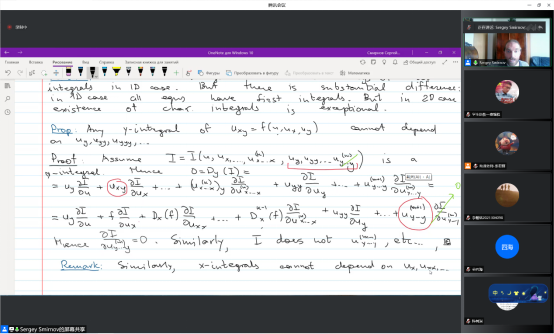 腾讯会议
Sergey Smirnov
OneNote для Windows 10
Фигуры
Преобразовать в фигуру
Математика
integrals in 1D case. But there is substantial difference:
in 1D case all eqns have first integrals. But in 2D case
existence of char. integrals is exceptional.
Prop. Any y-integral of u_xy = f(u, u_x, u_y) cannot depend
on u_y, u_yy, u_yyy, ...
Proof Assume I = I(u, u_x, ..., u_x...x^(n), u_y, u_yy, ... u_y...y^(m)) is a
y-integral. Hence 0 = D_y(I) =
= u_y ∂I/∂u + u_xy ∂I/∂u_x + ... + (u_x...x^(n))_y ∂I/∂u_x...x^(n) + u_yy ∂I/∂u_y + ... + u_y...y^(m+1) ∂I/∂u_y...y^(m) =
= u_y ∂I/∂u + f ∂I/∂u_x + D_x(f) ∂I/∂u_xx + ... + D_x^(n-1)(f) ∂I/∂u_x...x^(n) + u_yy ∂I/∂u_y + ... + u_y...y^(m+1) ∂I/∂u_y...y^(m)
Hence ∂I/∂u_y...y^(m) = 0. Similarly, I does not u_y...y^(m-1), etc...,
Remark: Similarly, x-integrals cannot depend on u_x, u_xx, ...
Sergey Smirnov
四海
Sergey Smirnov的屏幕共享